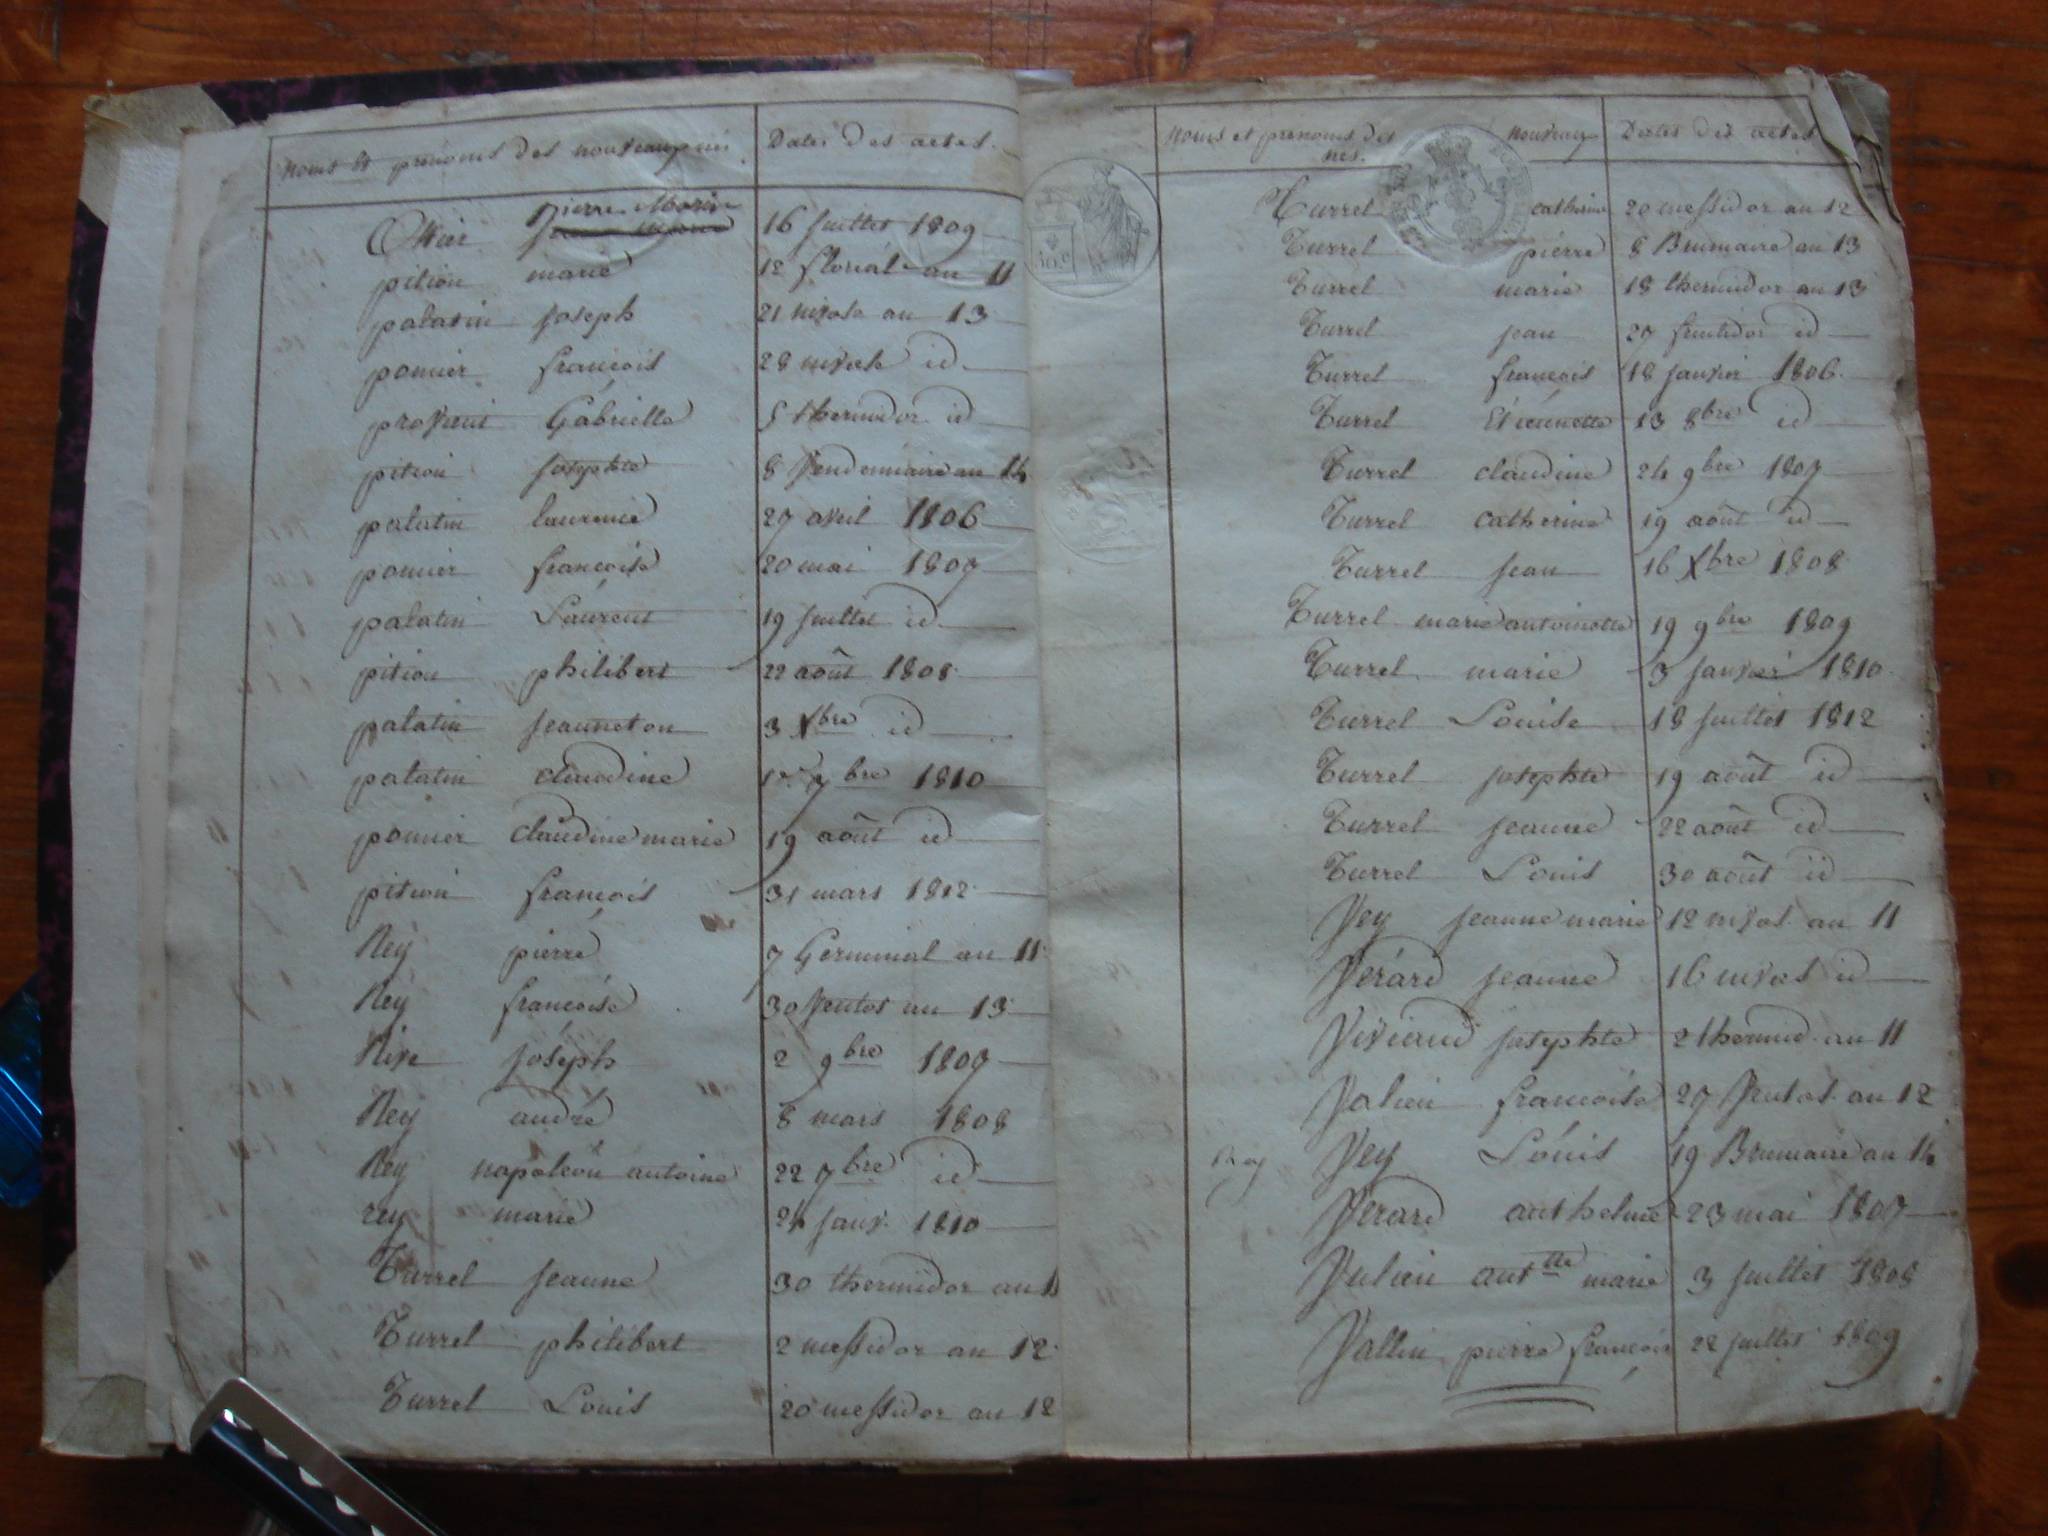 Noms et prénoms des nouveaux nés
Dates des actes.
Ollier pierre Marie 16 juillet 1809
pition marie 12 floréal an 11
palatin joseph 21 nivose an 13
pomier françois 28 nivose id
provent Gabrielle 5 thermidor id
pition josephte 8 Vendemiaire an 14
palatin laurence 27 avril 1806
pomier françoise 20 mai 1807
palatin Laurent 19 juillet id
pition philibert 22 août 1808
palatin jeanneton 3 Xbre id
palatin claudine 1er 7bre 1810
pomier claudine marie 19 août id
pition françois 31 mars 1812
Rey pierre 7 Germinal an 11
Rey françoise 30 Ventos an 13
Rive joséph 2 9bre 1807
Rey andré 8 mars 1808
Rey napoleon antoine 22 7bre id
rey marie 24 janv. 1810
Turrel jeanne 30 thermidor an 11
Turrel philibert 2 messidor an 12
Turrel Louis 20 messidor an 12
Noms et prénoms des nouveaux
nés.
Dates des actes
Turrel catherine 20 messidor an 12
Turrel pierre 8 Brumaire an 13
Turrel marie 18 thermidor an 13
Turrel jean 27 fructidor id
Turrel françois 18 janvier 1806
Turrel Etiennette 13 8bre id
Turrel claudine 24 9bre 1807
Turrel catherine 19 août id
Turrel jean 16 Xbre 1808
Turrel marie antoinette 19 9bre 1809
Turrel marie 3 janvier 1810
Turrel Louise 18 juillet 1812
Turrel josephte 19 août id
Turrel jeanne 22 août id
Turrel Louis 30 août id
Vey jeanne marie 12 nivos. an 11
Verard jeanne 16 nivos id
Viviand josephte 2 thermid. an 11
Valien françoise 27 Ventos. an 12
Rey Vey Louis 19 Brumaire an 14
Verard anthelme 23 mai 1807
Vulien anttte marie 3 juillet 1808
Vallin pierre françois 22 juillet 1809